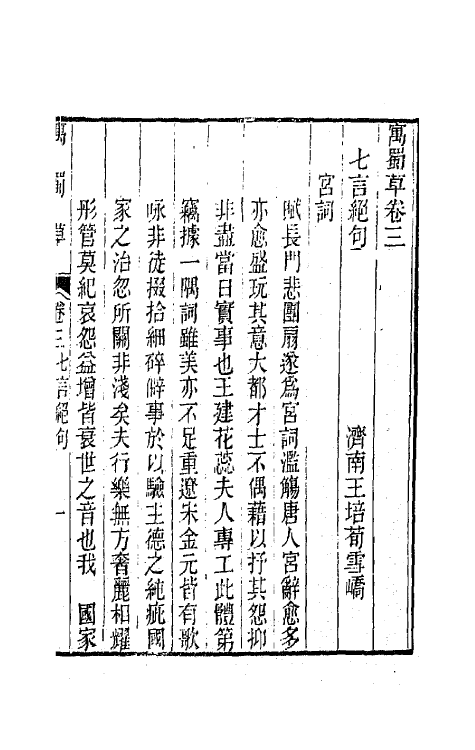 寓蜀草卷三
七言絕句
濟南王培荀雪嶠
宮詞
賦長門悲團扇遂爲宮詞濫觴唐人宮辭愈多
亦愈盛玩其意大都才士不偶藉以抒其怨抑
非盡當日實事也王建花蕊夫人專工此體第
竊據一隅詞雖美亦不足重遼宋金元皆有歌
咏非徒掇拾細碎僻事於以驗主德之純疵國
家之治忽所關非淺矣夫行樂無方奢麗相耀
彤管莫紀哀怨益增皆衰世之音也我 國家
寓蜀草 卷三七言絕句 一